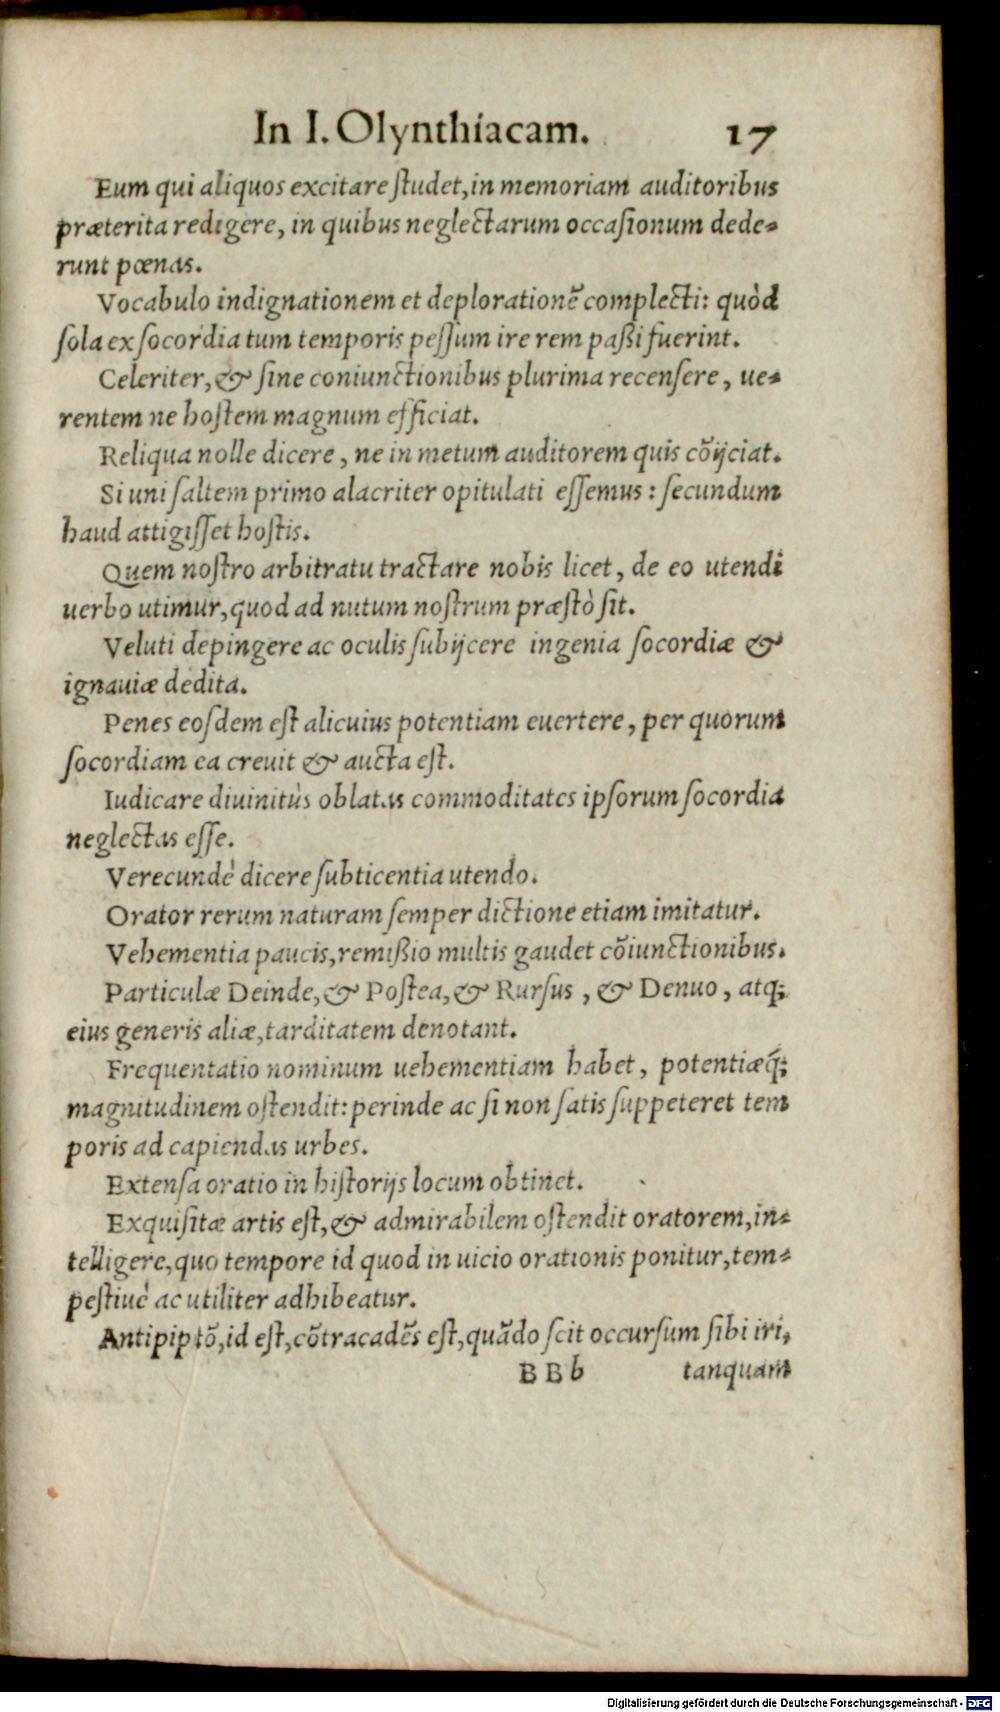 In I. Olynthiacam. 17
Eum qui aliquos excitare ſtudet, in memoriam auditoribus
præterita redigere, in quibus neglectarum occaſionum dede-
runt pœnas.
Vocabulo indignationem et deplorationẽ complecti: quòd
ſola ex ſocordia tum temporis peſſum ire rem paßi fuerint.
Celeriter, & ſine coniunctionibus plurima recenſere, ue-
rentem ne hoſtem magnum efficiat.
Reliqua nolle dicere, ne in metum auditorem quis cõijciat.
Si uni ſaltem primo alacriter opitulati eſſemus: ſecundum
haud attigiſſet hoſtis.
Quem noſtro arbitratu tractare nobis licet, de eo utendi
uerbo utimur, quod ad nutum noſtrum præſtò ſit.
Veluti depingere ac oculis ſubijcere ingenia ſocordiæ &
ignauiæ dedita.
Penes eoſdem eſt alicuius potentiam euertere, per quorum
ſocordiam ea creuit & aucta eſt.
Iudicare diuinitùs oblatas commoditates ipſorum ſocordia
neglectas eſſe.
Verecundè dicere ſubticentia utendo.
Orator rerum naturam ſemper dictione etiam imitatur.
Vehementia paucis, remißio multis gaudet cõiunctionibus.
Particulæ Deinde, & Poſtea, & Rurſus, & Denuo, atq;
eius generis aliæ, tarditatem denotant.
Frequentatio nominum uehementiam habet, potentiæq́;
magnitudinem oſtendit: perinde ac ſi non ſatis ſuppeteret tem
poris ad capiendas urbes.
Extenſa oratio in hiſtorijs locum obtinet.
Exquiſitæ artis eſt, & admirabilem oſtendit oratorem, in-
telligere, quo tempore id quod in uicio orationis ponitur, tem-
peſtiuè ac utiliter adhibeatur.
Antipiptõ, id eſt, cõtracadẽs eſt, quãdo ſcit occurſum ſibi iri,
B B b tanquam
Digitalisierung gefördert durch die Deutsche Forschungsgemeinschaft - DFG